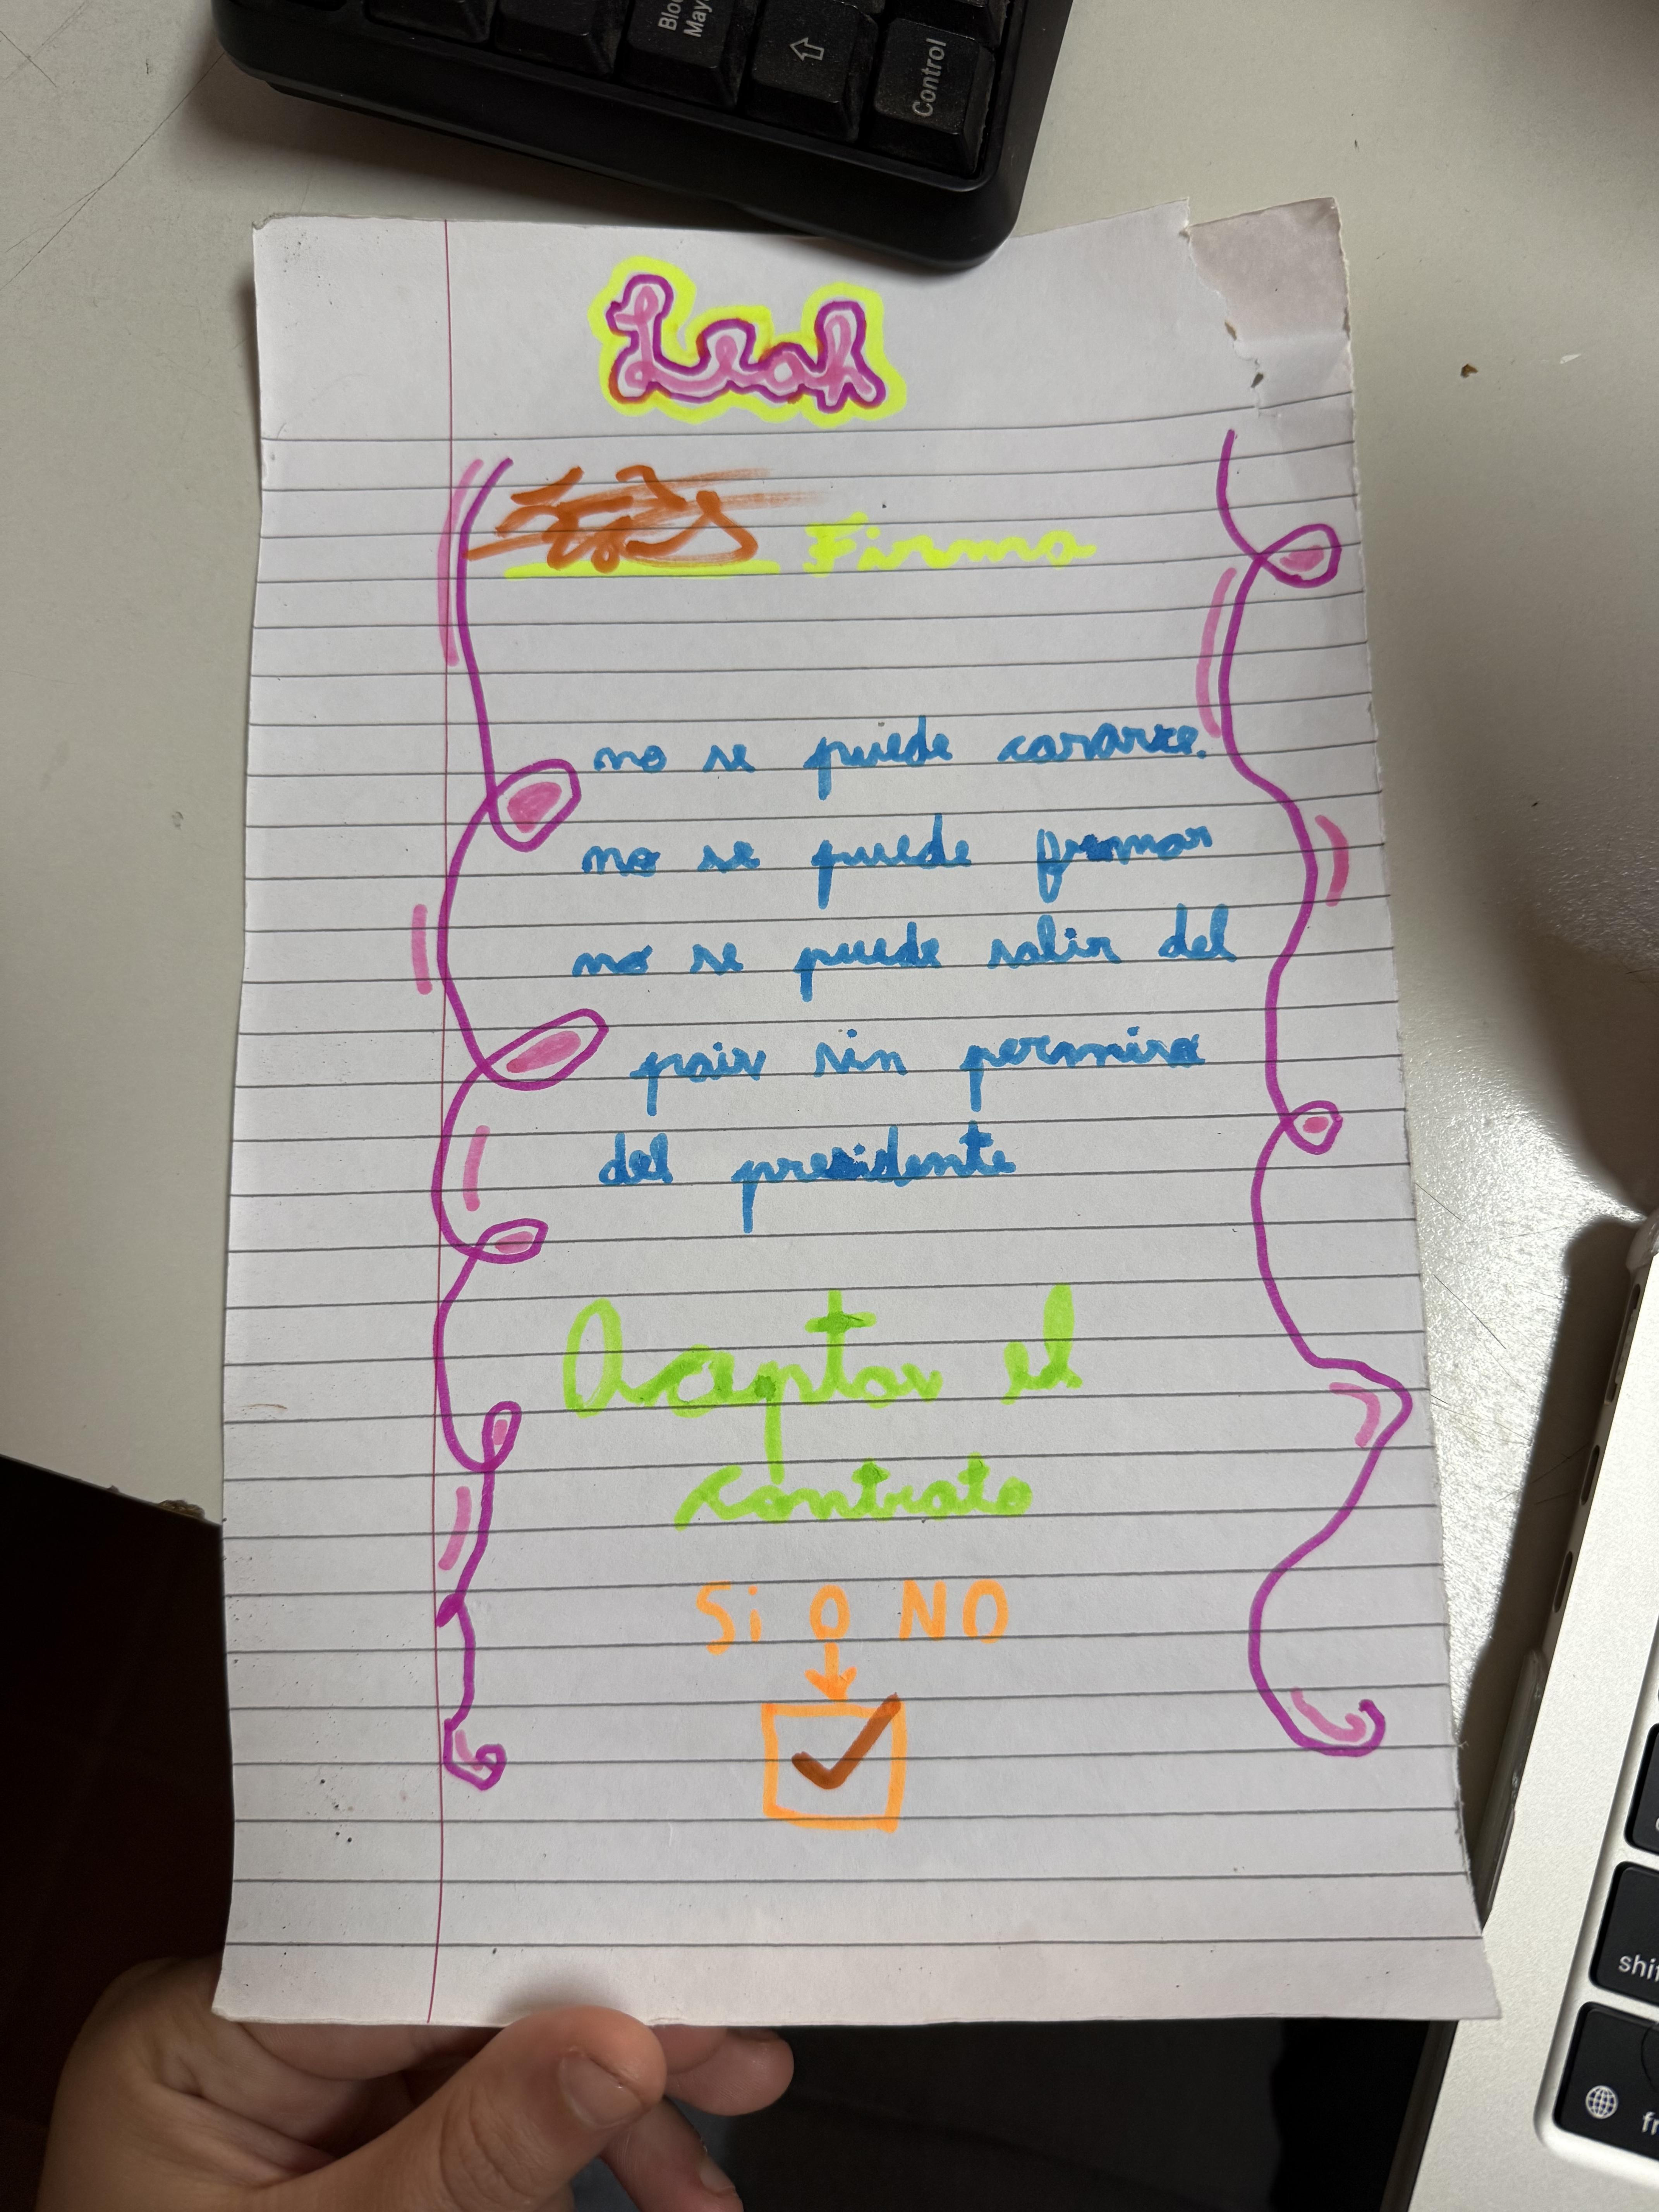 Bloq
May
Control
Leah
Firma
no se puede cararse.
no se puede firmar
no se puede salir del
pais sin permiso
del presidente
Aceptar el
contrato
Si O NO
shif